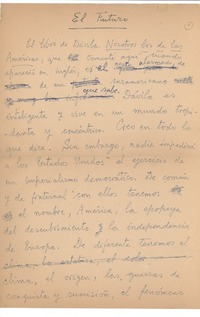 El Futuro
El libro de Dávila Nosotros los de las
Américas, que comento aquí cuando
apareció en inglés, es el
de un suramericano
que sabe. Dávila es
inteligente y vive en un mundo trepi-
dante y concéntrico. Creo en todo lo
que dice. Sin embargo, nadie impedirá
a los Estados Unidos el ejercicio de
un imperialismo democrático. De común
y de fraternal con ellos tenemos
el nombre, América, la epopeya
del descubrimiento y la independencia
de Europa. De diferente tenemos el
clima, la estatura, el
clima, el origen, las guerras de
conquista y sumisión, el fenómeno